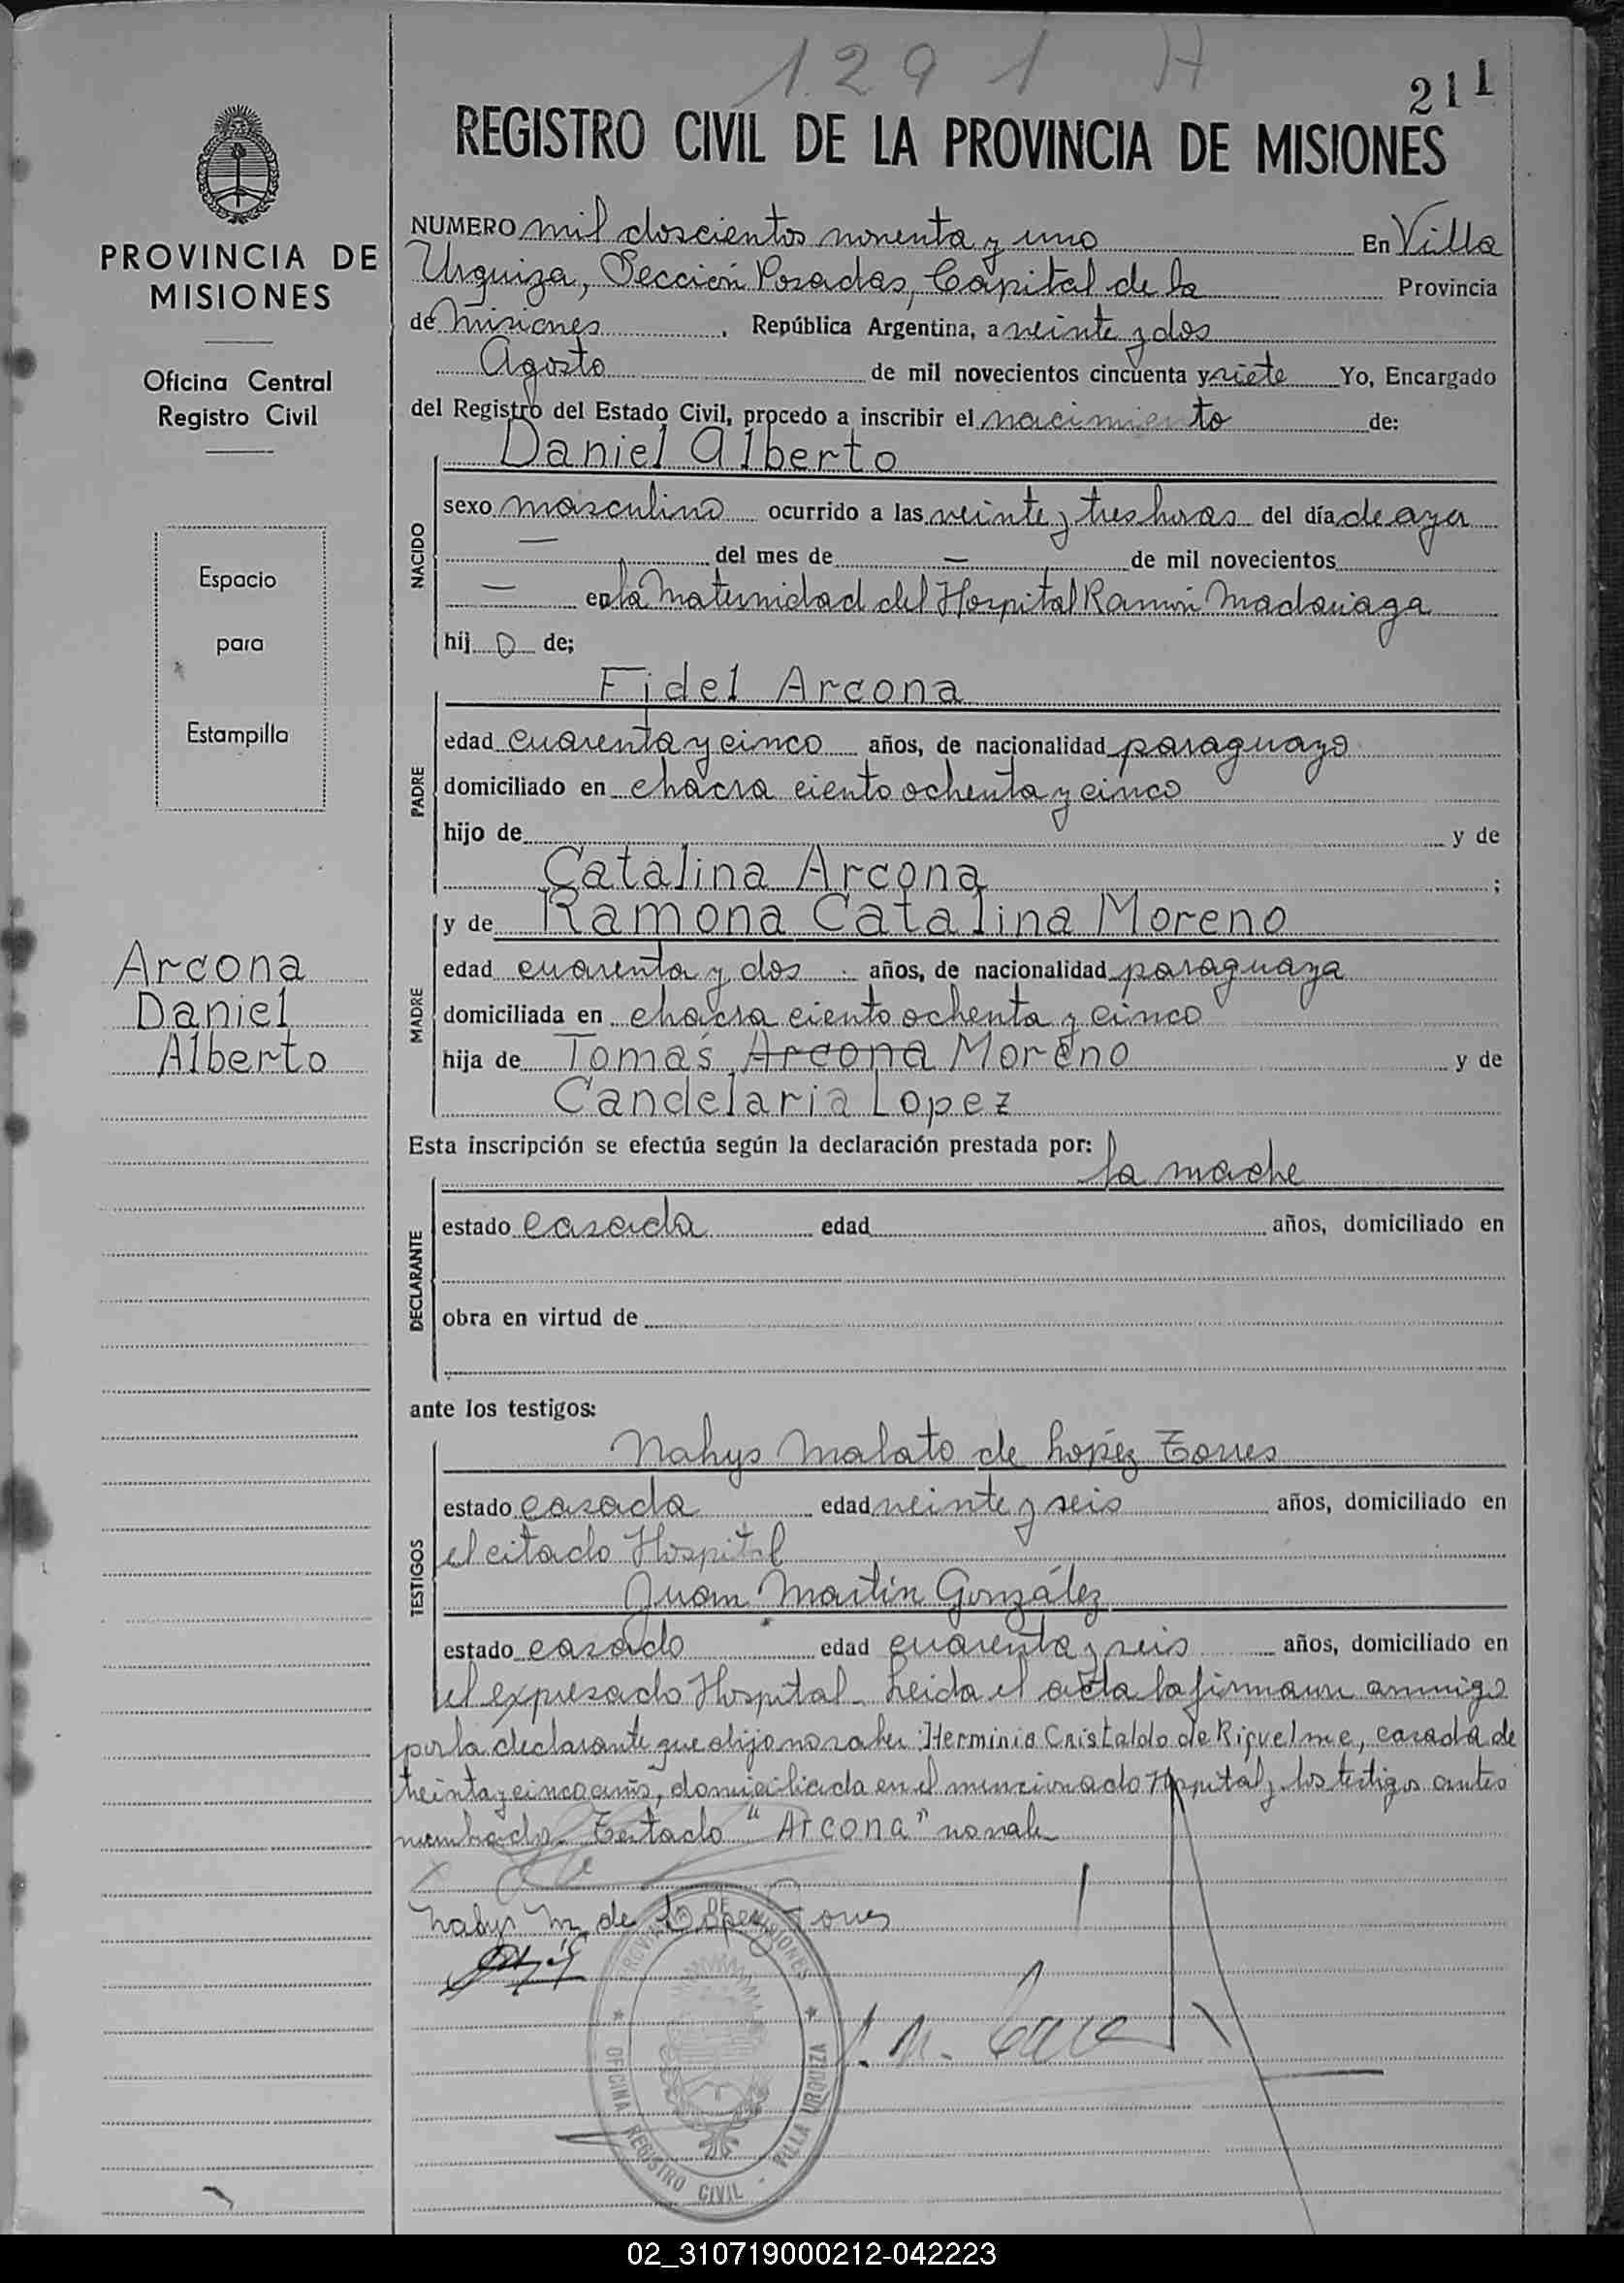 1291 H
211
REGISTRO CIVIL DE LA PROVINCIA DE MISIONES
PROVINCIA DE
MISIONES
Oficina Central
Registro Civil
Espacio
para
Estampilla
Arcona
Daniel
Alberto
NUMERO mil doscientos noventa y uno En Villa
Urquiza, Sección Posadas, Capital de la Provincia
de Misiones, República Argentina, a veinte y dos
Agosto de mil novecientos cincuenta y siete Yo, Encargado
del Registro del Estado Civil, procedo a inscribir el nacimiento de:
Daniel Alberto
NACIDO
sexo masculino ocurrido a las veinte y tres horas del día de ayer
— del mes de — de mil novecientos
— en la Maternidad del Hospital Ramón Madariaga
hij o de;
Fidel Arcona
PADRE
edad cuarenta y cinco años, de nacionalidad paraguayo
domiciliado en chacra ciento ochenta y cinco
hijo de y de
Catalina Arcona ;
y de Ramona Catalina Moreno
MADRE
edad cuarenta y dos años, de nacionalidad paraguaya
domiciliada en chacra ciento ochenta y cinco
hija de Tomás Arcona Moreno y de
Candelaria Lopez
Esta inscripción se efectúa según la declaración prestada por:
la madre
DECLARANTE
estado casada edad años, domiciliado en
obra en virtud de
ante los testigos:
Nahys Malato de López Torres
TESTIGOS
estado casada edad veinte y seis años, domiciliado en
el citado Hospital
Juan Martín González
estado casado edad cuarenta y seis años, domiciliado en
el expresado Hospital. Leida el acta la firman conmigo
por la declarante que dijo no saber: Herminia Cristaldo de Riquelme, casada de
treinta y cinco años, domiciliada en el mencionado Hospital y los testigos antes
nombrados. Testado "Arcona" no vale
Nahys M. de López Torres
PROVINCIA DE MISIONES
OFICINA REGISTRO CIVIL - VILLA URQUIZA
02_310719000212-042223